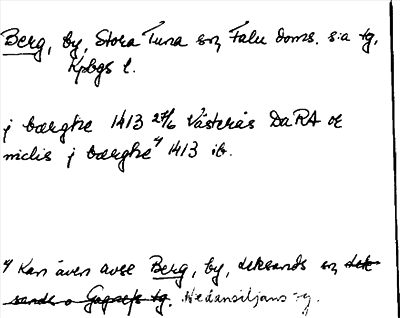 Berg, by, Stora Tuna sn, Falu doms. s:a tg,
Kpbgs l.
j bærghe 1413 27/6 Västerås DaRA or
niclis j bærghe 4) 1413 ib.
4) Kan även avse Berg, by, Leksands sn, Lek-
sands o Gagnefs tg. Nedansiljans tg.